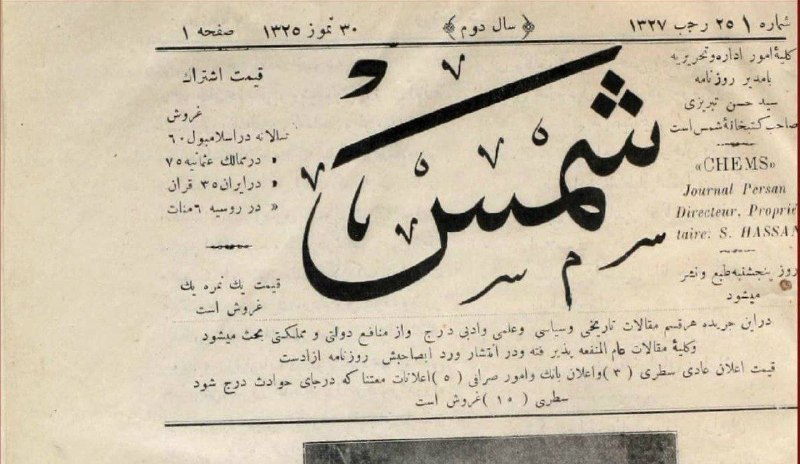 شماره ۱ ۲۵ رجب ۱۳۲۷ ﴿ سال دوم ﴾ ۳۰ تموز ۱۳۲۵ صفحه ۱
كلیهٔ امور اداره و تحریریه
بامدیر روزنامه
سید حسن تبریزی
صاحب كتبخانهٔ شمس است
«CHEMS»
Journal Persan
Directeur, Proprié
taire: S. HASSAN
روز پنجشنبه طبع و نشر
میشود
شمس
قیمت اشتراك
غروش
سالانه در اسلامبول ۶۰
« در ممالك عثمانیه ۷۵
« در ایران ۳۵ قران
« در روسیه ۶ منات
قیمت یك نمره یك
غروش است
دراین جریده هرقسم مقالات تاریخی وسیاسی وعلمی وادبی درج واز منافع دولتی و مملكتی بحث میشود
وكلیهٔ مقالات عام المنفعه پذیر فته ودر انتشار ورد ایصاحبش روزنامه ازادست
قیمت اعلان عادی سطری ( ۳ ) واعلان بانك وامور صرافی ( ۵ ) اعلانات معتنا كه درجای حوادث درج شود
سطری ( ۱۵ ) غروش است